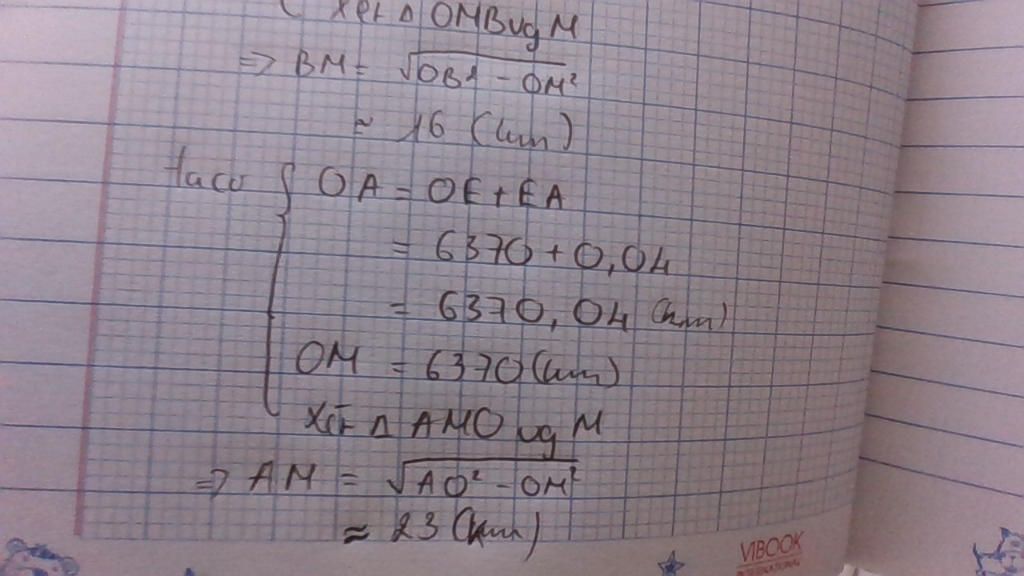 xét Δ OMB vg M
=> BM = √OB² - OM²
≈ 16 (km)
ta có { OA = OE + EA
= 6370 + 0,04
= 6370,04 (km)
OM = 6370 (km)
xét Δ AMO vg M
=> AM = √AO² - OM²
≈ 23 (km)
VIBOOK
INTERNATIONAL